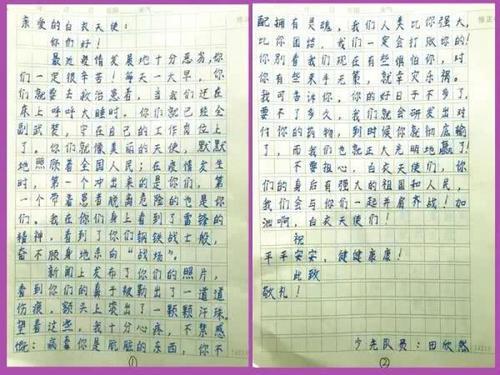 亲爱的白衣天使：
你们好！
最近疫情发展地十分恶劣，你
们一定很辛苦！每天一大早，你
们就要去救治患者，当我们还在
床上呼呼大睡时，你们就已经全
副武装，守在自己的工作岗位上
了。你们就像美丽的天使，默默
地照顾着全国人民；在疫情发生
时，第一个冲出来的是你们，第
一个带着患者脱离危险的也是你
们。我在你们身上看到了雷锋的
精神，看到了你们钢铁战士般，
奋不顾身地杀向“战场”。
新闻上发布了你们的照片，
看到你们的鼻子被勒出了一道道
伤痕，额头上突出了一颗颗汗珠。
望着这些，我十分心疼，不禁感
慨：病毒你是肮脏的东西，你不
①
配拥有灵魂，我们人类比你强大，
比你团结，我们一定会打败你的！
你别看我们现在有些惧怕你，对
你有些束手无策，就幸灾乐祸。
我可告诉你，你的好日子不多了，
要不了多久，我们就会研发出对
付你的药物，到时候你就彻底输
了，而我们也就正大光明地赢了！
不要担心，白衣天使们，你
们的身后有强大的祖国和人民，
我们会与你们一起并肩齐战！加
油啊，白衣天使们！
祝
平平安安，健健康康！
此致
敬礼！
少先队员：田欣然
②